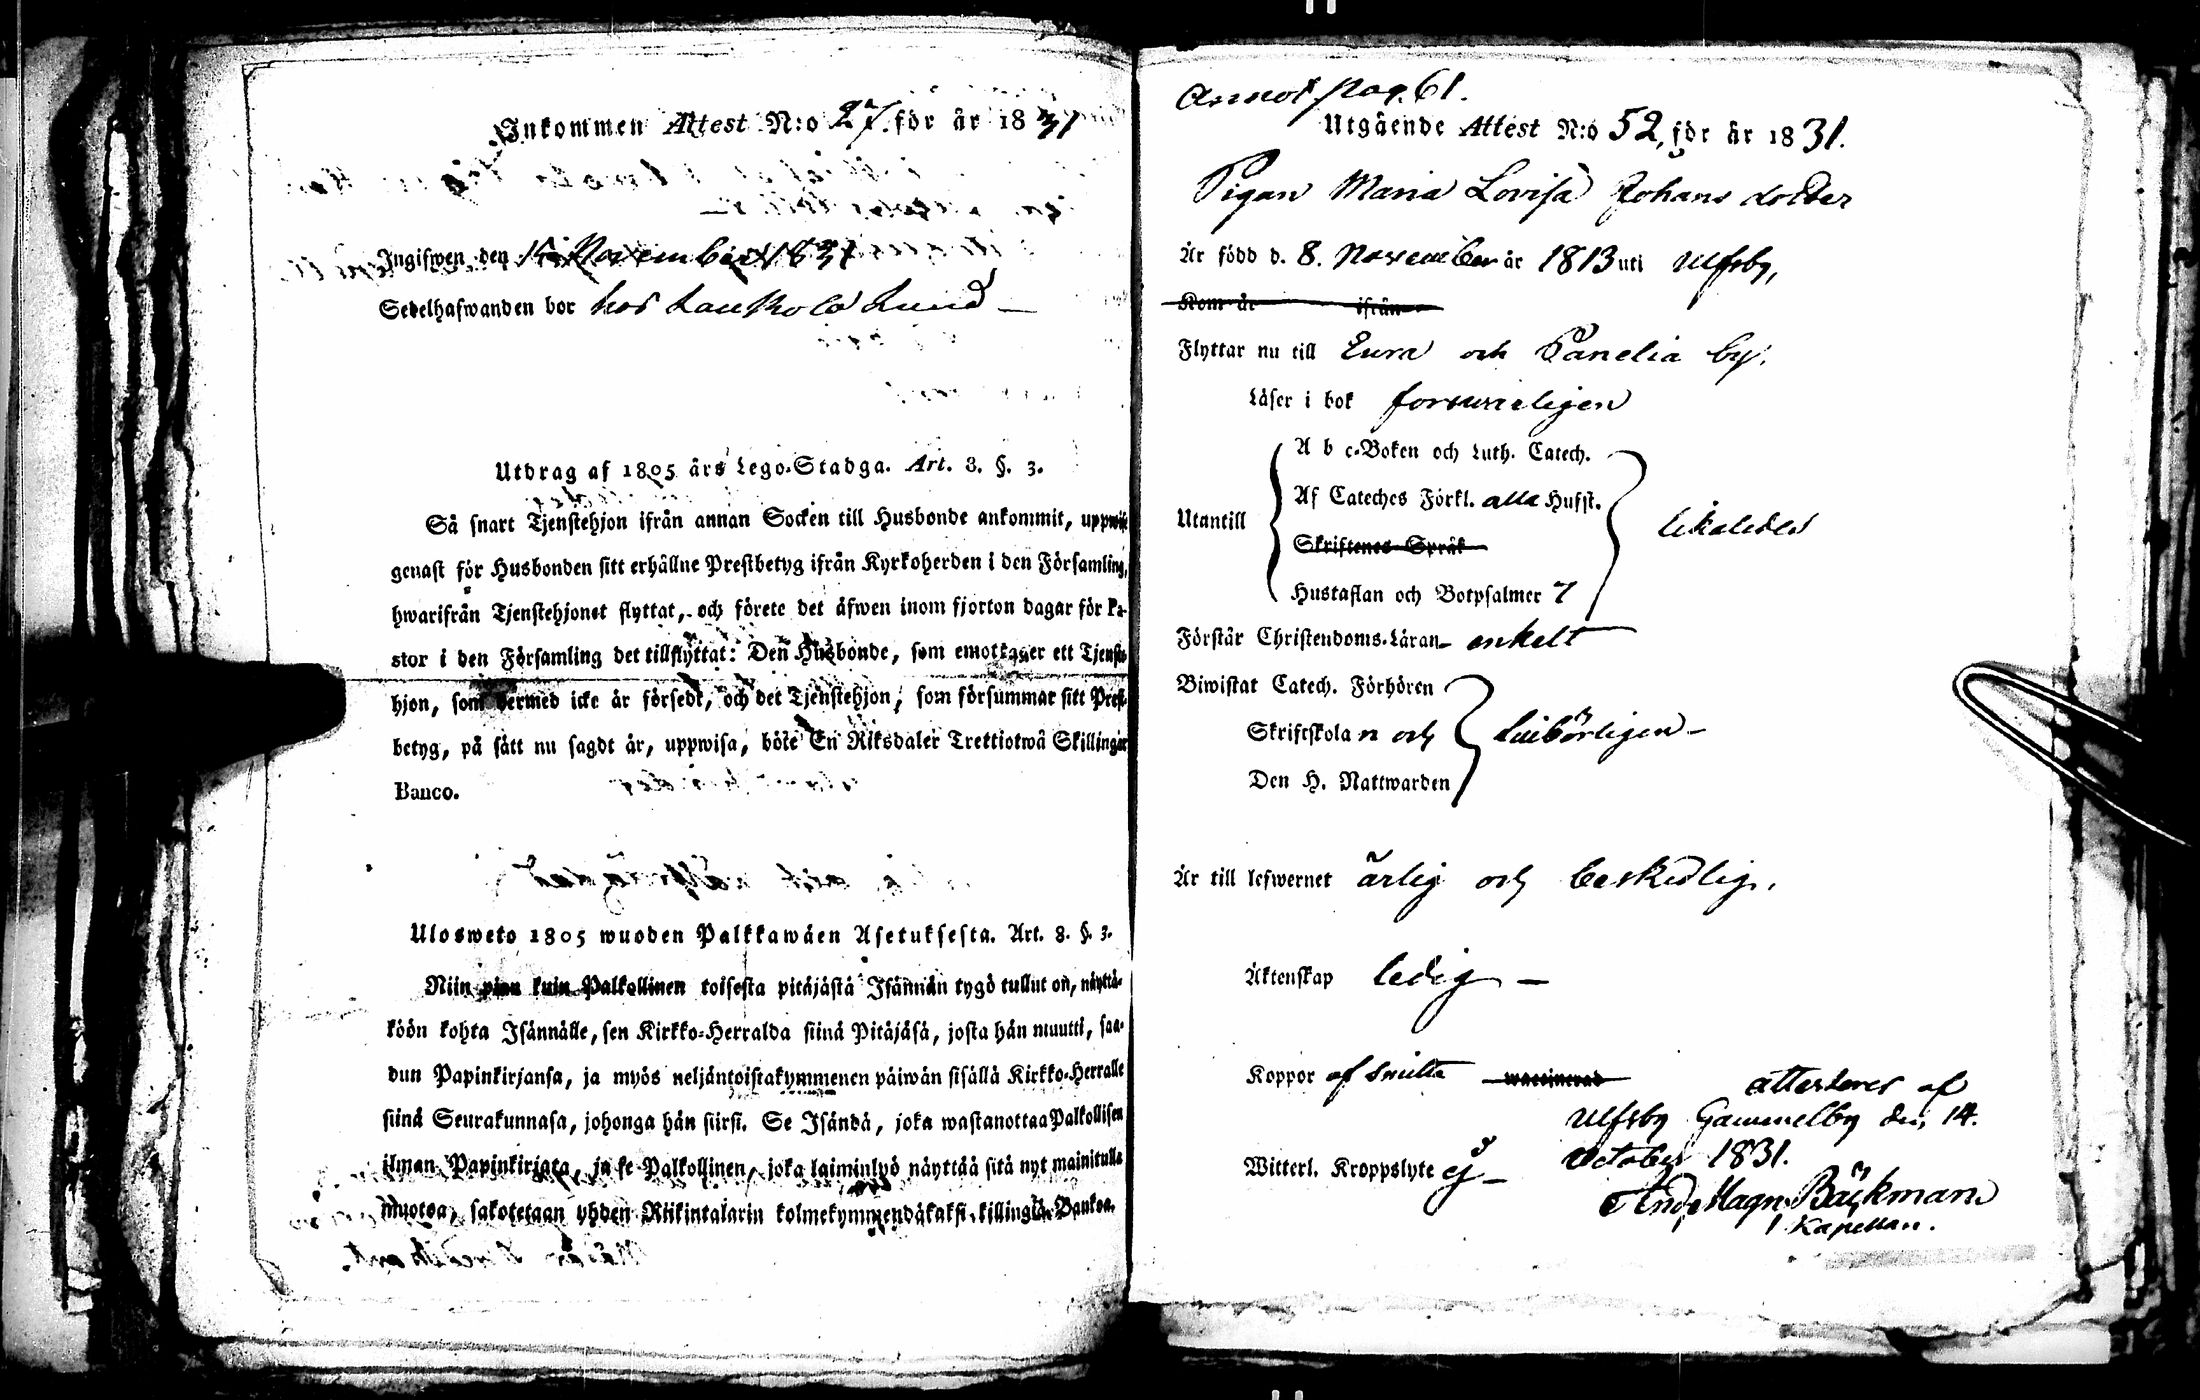 Inkommen Attest N:o 27. för år 1831
Ingifwen den November 1831
Sedelhafwanden bor hos Lauskola Lund
Utdrag af 1805 års Lego-Stadga. Art. 8. §. 3.
Så snart Tjenstehjon ifrån annan Socken till Husbonde ankommit, uppwise
genast för Husbonden sitt erhållne Prestbetyg ifrån Kyrkoherden i den Församling,
hwarifrån Tjenstehjonet flyttat, och förete det äfwen inom fjorton dagar för Pa-
stor i den Församling det tillflyttat: Den Husbonde, som emottager ett Tjenste-
hjon, som dermed icke är försedt, och det Tjenstehjon, som försummar sitt Prest-
betyg, på sätt nu sagdt är, uppwisa, böte En Riksdaler Trettiotwå Skillingar
Banco.
Ulosweto 1805 wuoden Palkkawäen Asetuksesta. Art. 8. §. 3.
Niin pian kuin Palkollinen toisesta pitäjästä Isännän tygö tullut on, näyttä-
köön kohta Isännälle, sen Kirkko-Herralda siinä Pitäjäsä, josta hän muutti, saa-
dun Papinkirjansa, ja myös neljäntoistakymmenen päiwän sisällä Kirkko-Herralle
siinä Seurakunnasa, johonga hän siirsi. Se Isändä, joka wastanottaa Palkollisen
ilman Papinkirjata, ja se Palkollinen, joka laiminlyö näyttää sitä nyt mainitulla
muotoa, sakotetaan yhden Riikintalarin kolmekymmendäkaksi killingiä Bankoa.
Annot. pag. 61.
Utgående Attest N:o 52, för år 1831.
Pigan Maria Lovisa Johans dotter
Är född d. 8. November år 1813 uti Ulfsby,
Kom år ifrån
Flyttar nu till Eura och Panelia by.
Läser i bok försvarligen
A b c-Boken och Luth. Catech.
Af Cateches Förkl. alla Hufst.
Utantill likaledes
Skriftenes Språk
Hustaflan och Botpsalmer 7
Förstår Christendoms-Läran enkelt
Biwistat Catech. Förhören
Skriftskolan och behörligen
Den H. Nattwarden
Är till lefwernet ärlig och beskedlig.
Äktenskap ledig
Koppor af smitta waccinerad
attesteres af
Ulfsby Gammelby den 14.
October 1831.
Witterl. Kroppslyte ej
And. Magn. Bäckman
Kapellan.